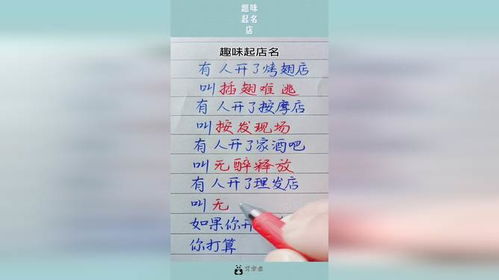 趣味
起名
店
趣味起店名
有人开了烤翅店
叫插翅难逃
有人开了按摩店
叫按发现场
有人开了家酒吧
叫无醉释放
有人开了理发店
叫无
如果你开
你打算